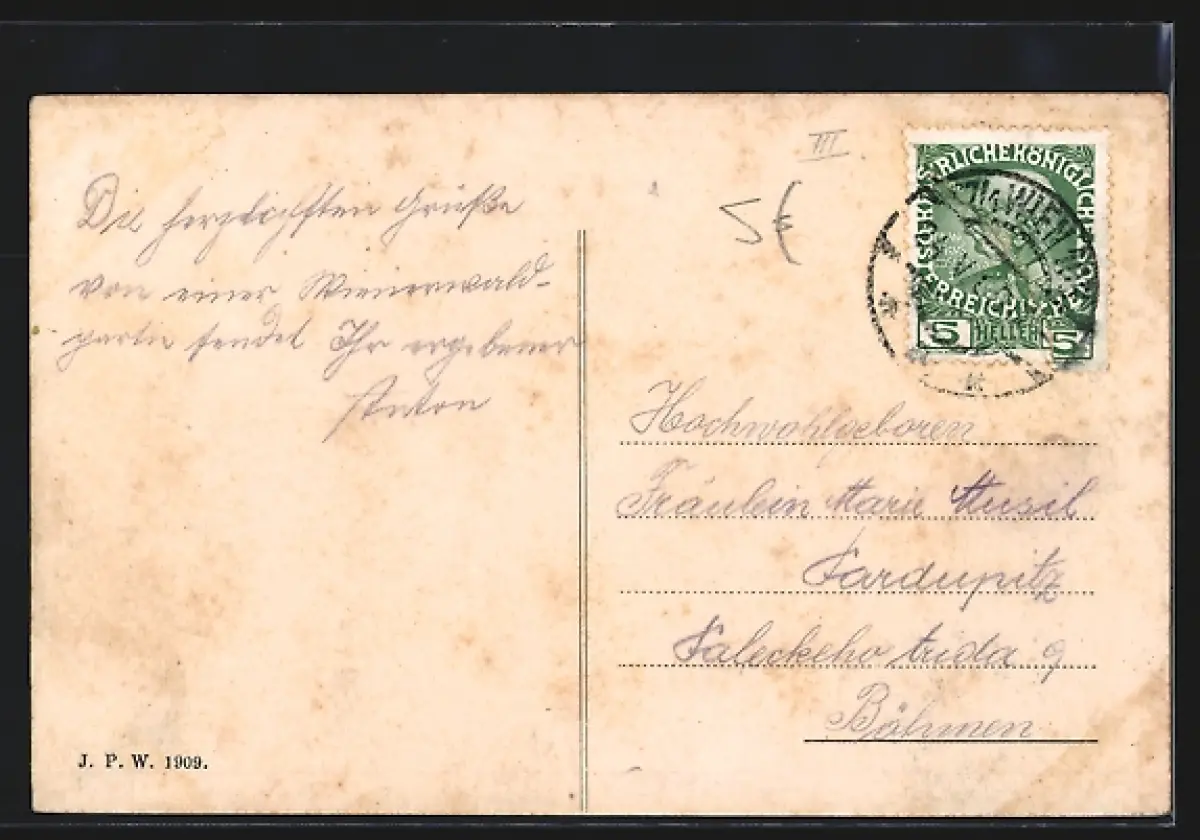 Die herzlichsten Grüße
von einer Wienerwald-
partie sendet Ihr ergebener
Anton
III
5€
KAISERLICHE KÖNIGLICHE ÖSTERREICHISCHE POST
5 HELLER 5
WIEN
Hochwohlgeboren
Fräulein Marie Musil
Pardupitz
Paleckeho trida 9
Böhmen
J. P. W. 1909.